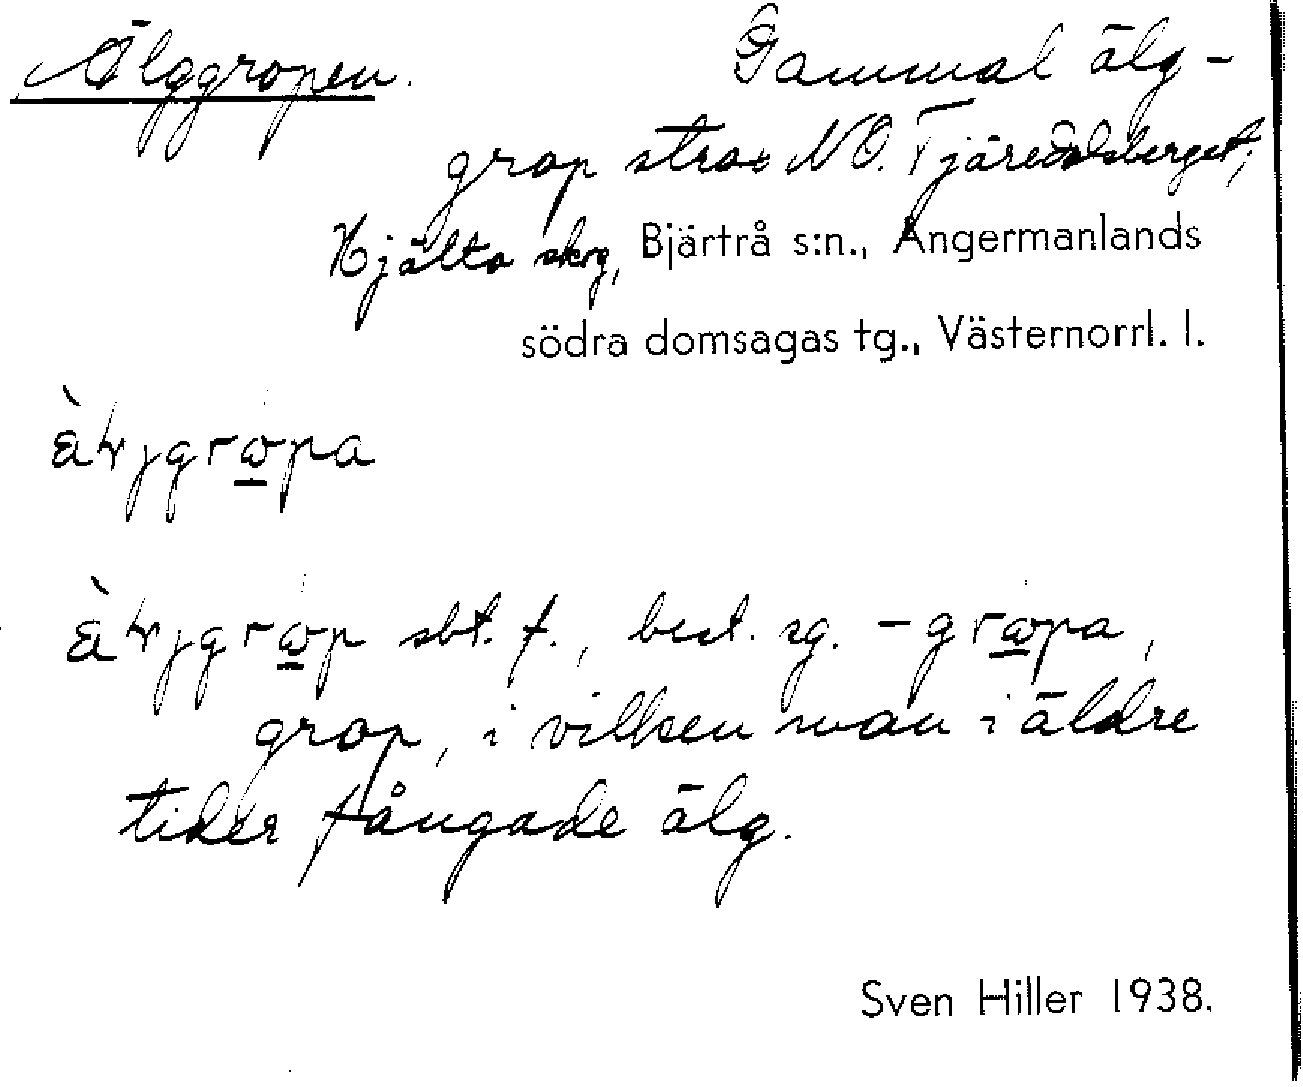 Älggropen. Gammal älg-
grop strax NO. Tjäredalsberget,
Hjälta skrg, Bjärtrå s:n., Ångermanlands
södra domsagas tg., Västernorrl. l.
sbt. f., best. sg.
grop, i vilken man i äldre
tider fångade älg.
Sven Hiller 1938.